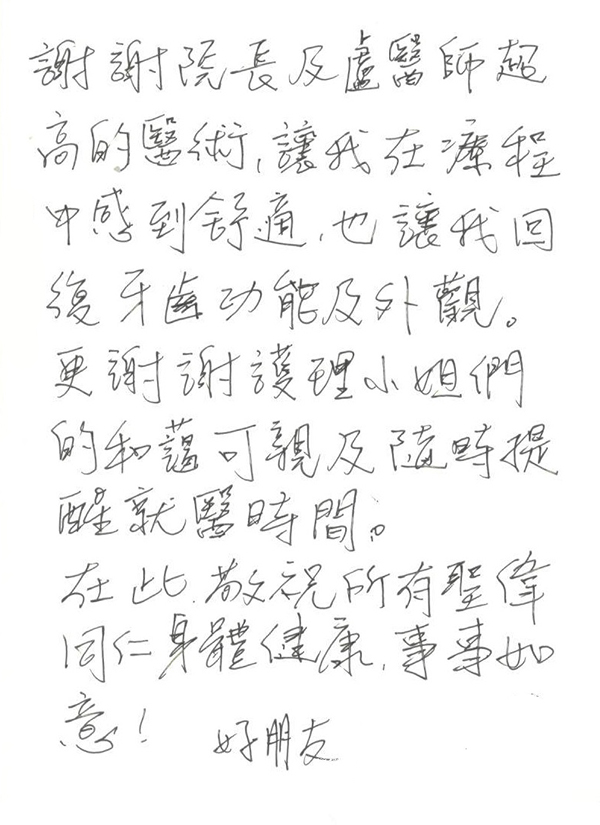 謝謝院長及盧醫師超
高的醫術,讓我在療程
中感到舒適,也讓我回
復牙齒功能及外觀。
更謝謝護理小姐們
的和藹可親及隨時提
醒就醫時間。
在此,敬祝所有聖偉
同仁身體健康,事事如
意!  好朋友